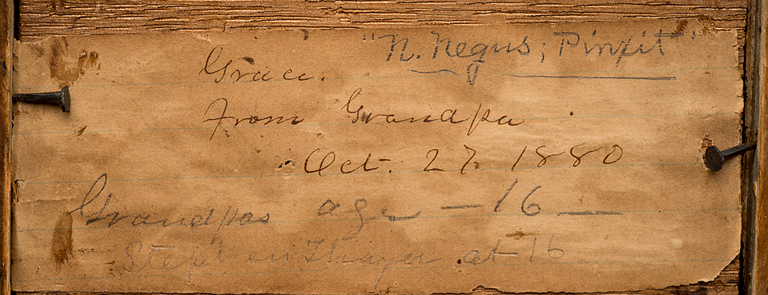 "N. Negus; Pinxit"
Grace.
From Grandpa
Oct. 27. 1880
Grandpas age – 16 –
Stephen Thayer at 16